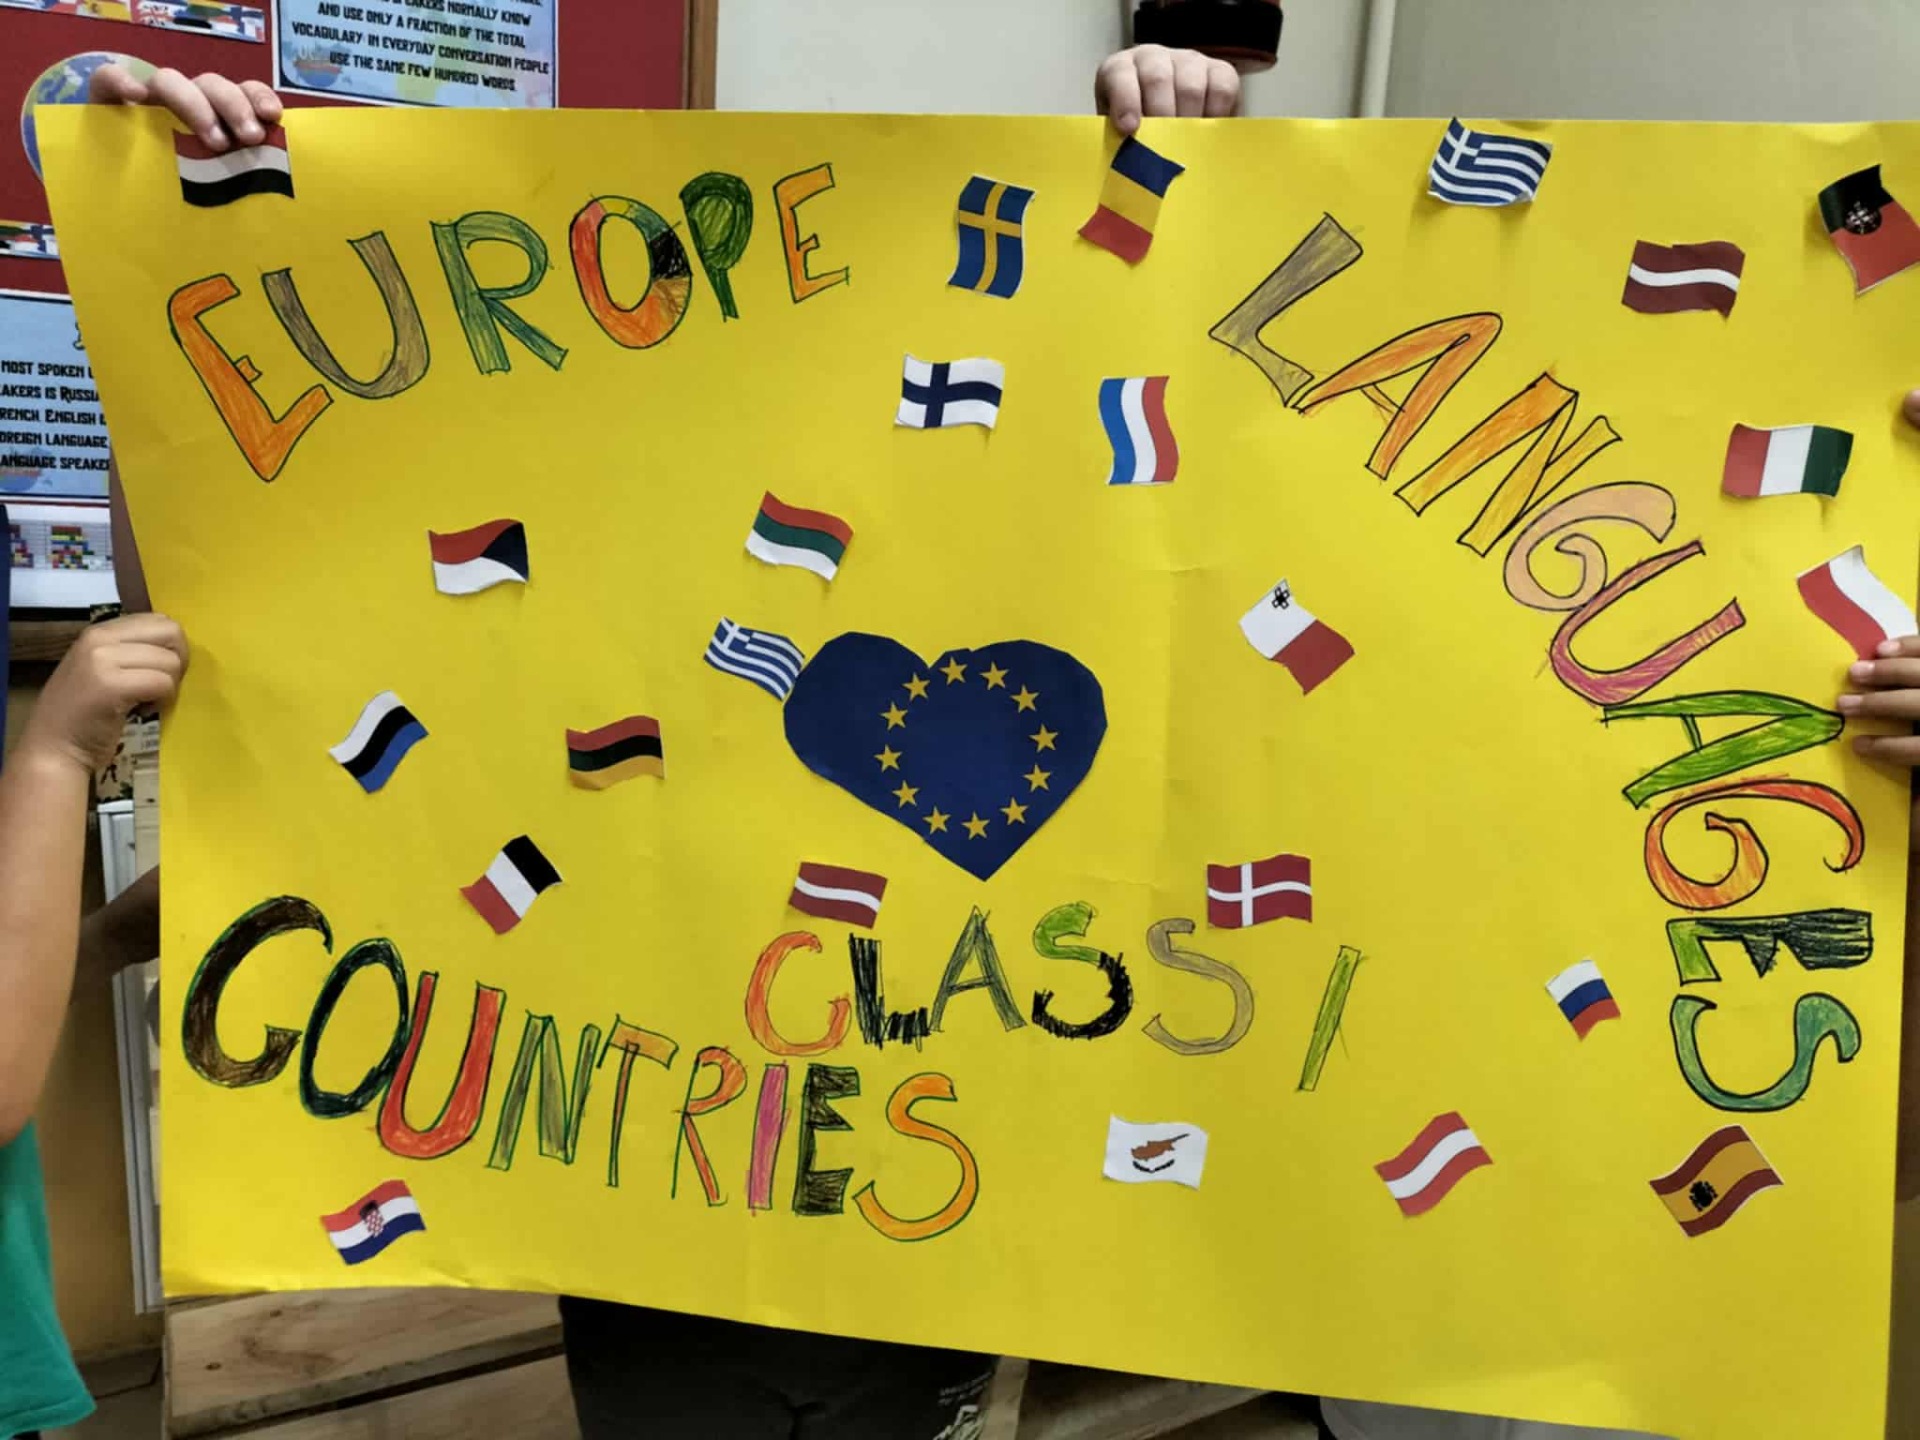 SPEAKERS NORMALLY KNOW
AND USE ONLY A FRACTION OF THE TOTAL
VOCABULARY: IN EVERYDAY CONVERSATION PEOPLE
USE THE SAME FEW HUNDRED WORDS.
MOST SPOKEN
AKERS IS RUSSI
RENCH, ENGLISH
OREIGN LANGUAGE
ANGUAGE SPEAKE
EUROPE
LANGUAGES
CLASS 1
COUNTRIES